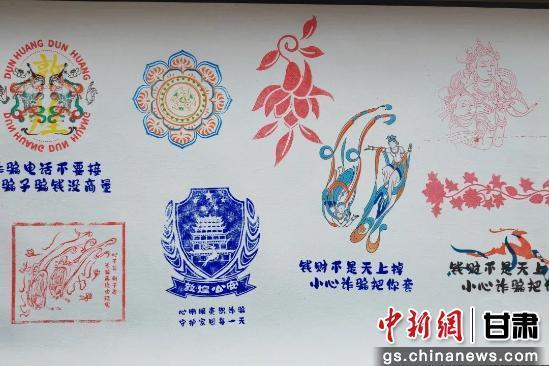 DUN HUANG DUN HUANG
敦煌
DUN HUANG DUN HUANG
诈骗电话不要接
骗子骗钱没商量
敦煌公安
心明眼亮识诈骗
守护家园每一天
钱财不是天上掉
小心诈骗把你套
钱财不是天上掉
小心诈骗把你套
中新網 甘肃
gs.chinanews.com